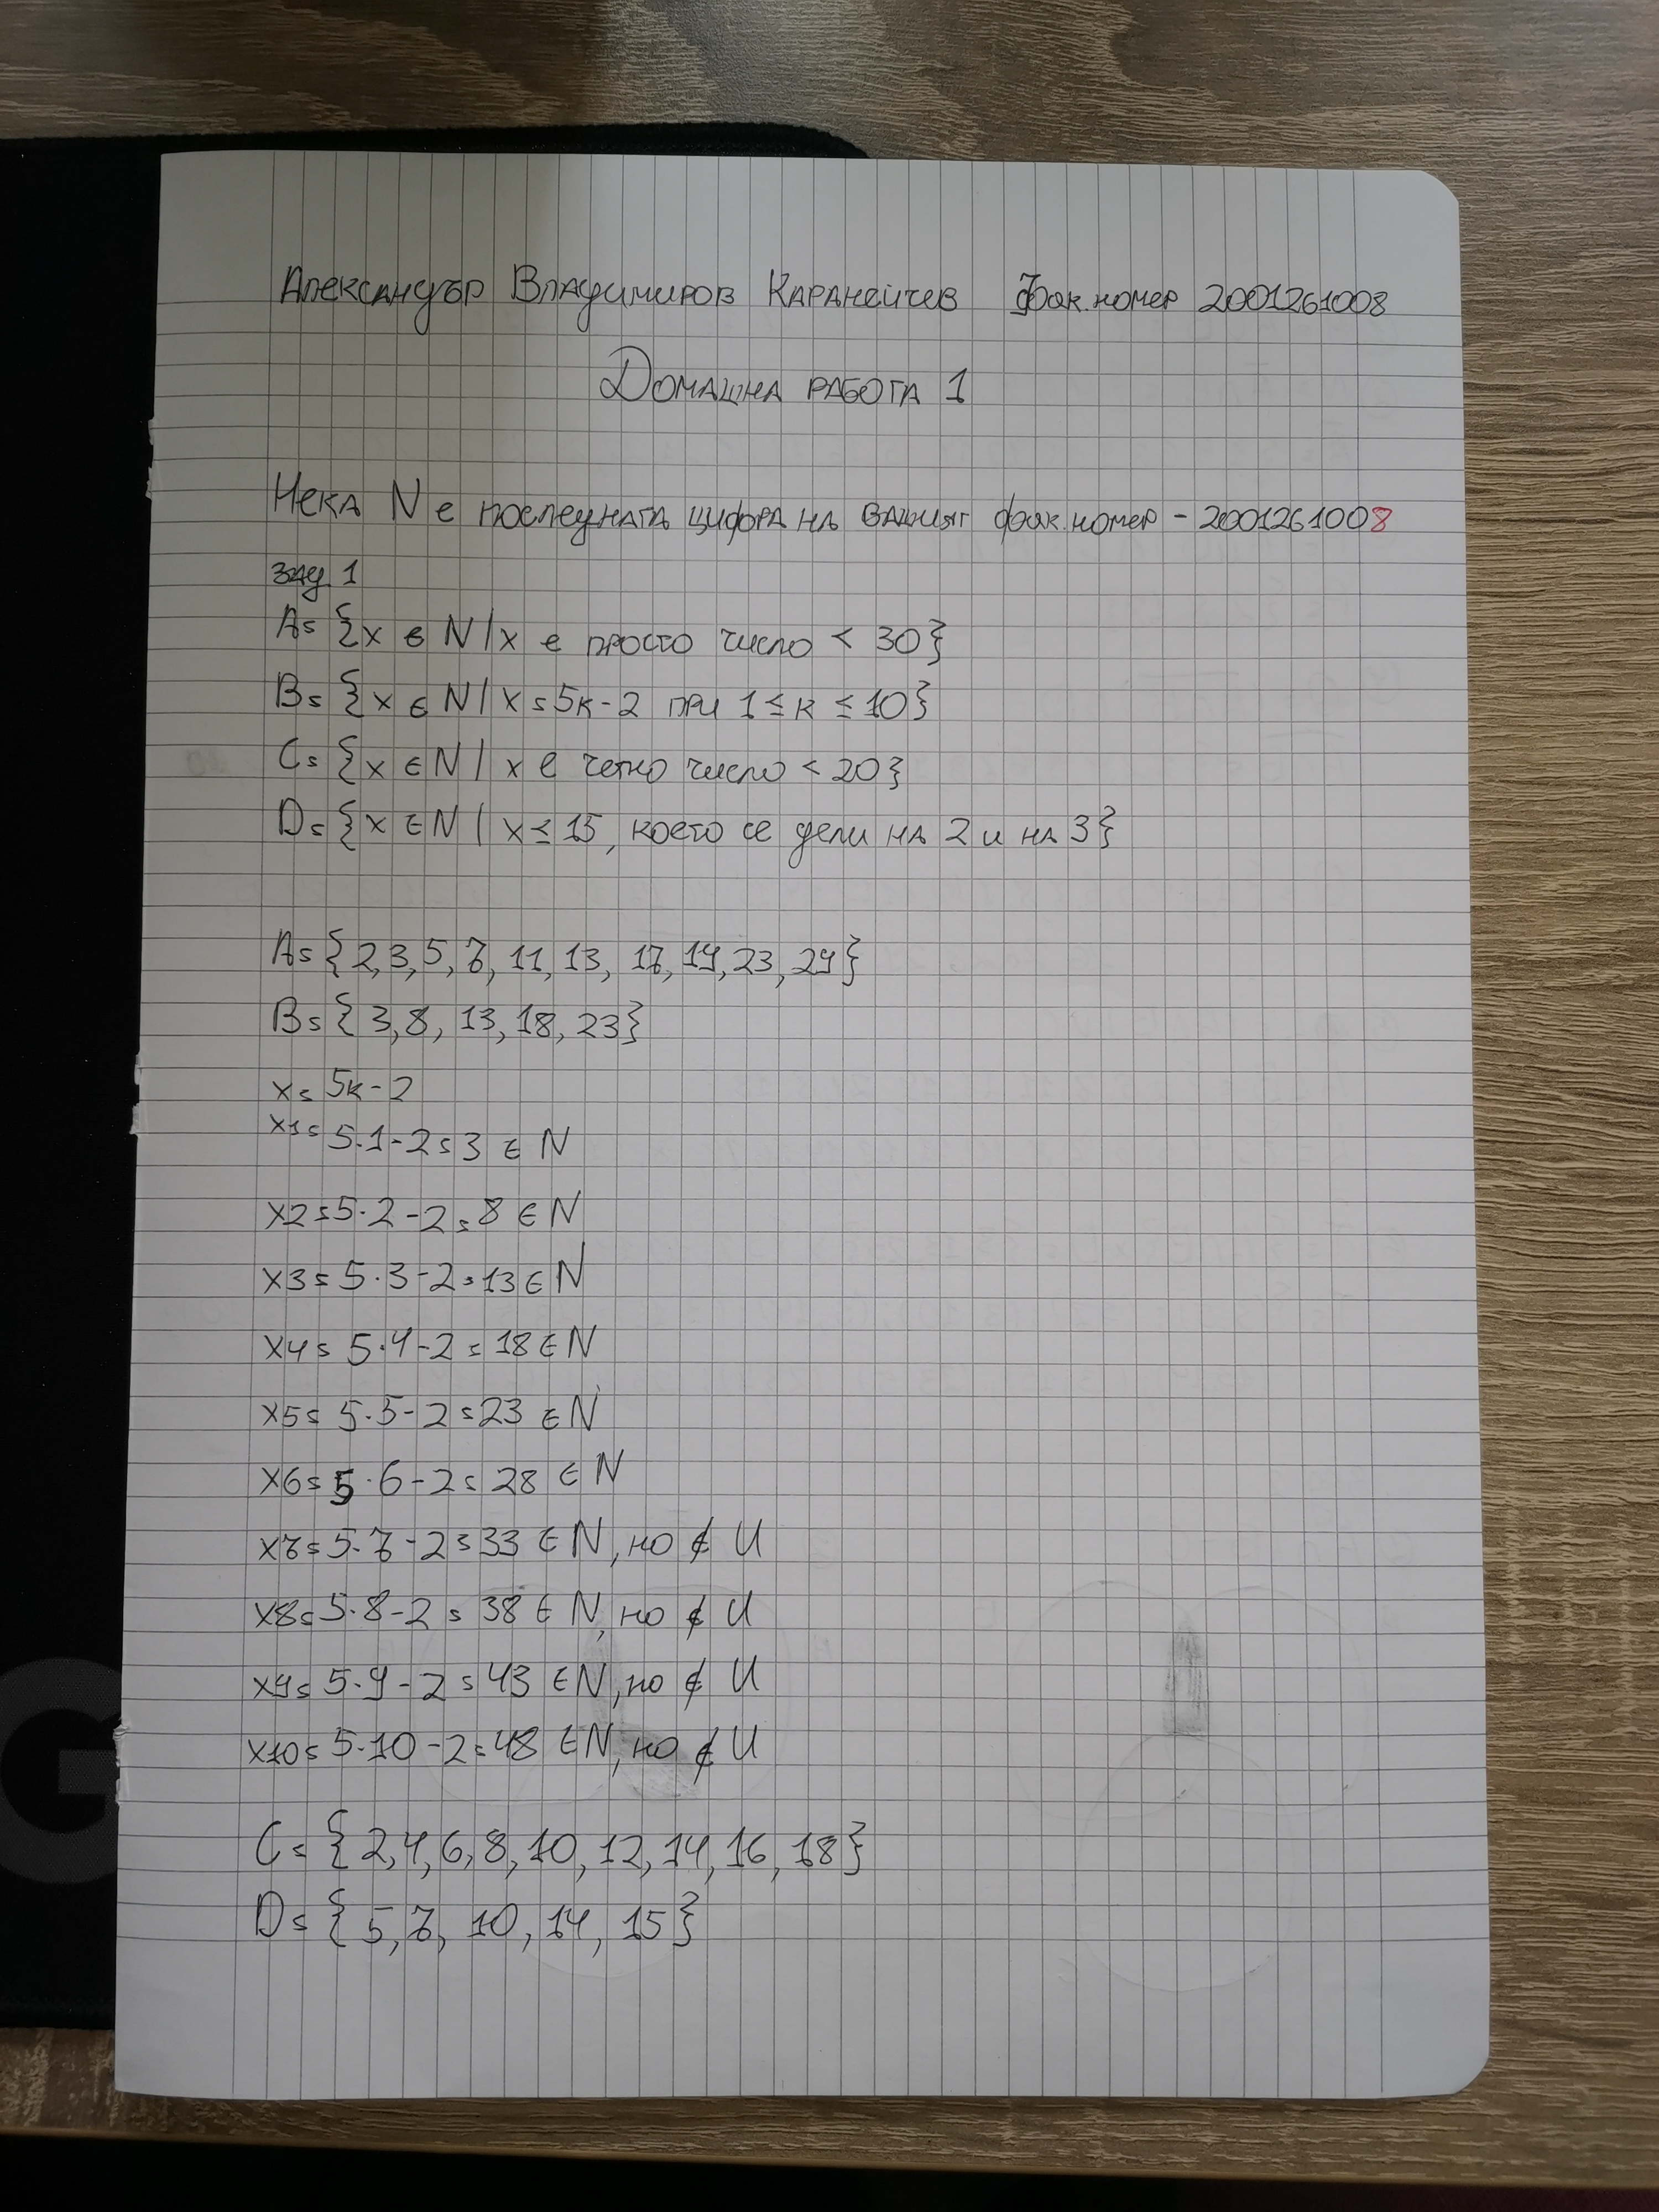 Александър Владимиров Каранейчев Фак.номер 2001261008
Домашна работа 1
Нека N е последната цифра на вашият фак.номер - 2001261008
зад. 1
A = {x ∈ N | x е просто число < 30}
B = {x ∈ N | x = 5k-2 при 1 ≤ k ≤ 10}
C = {x ∈ N | x е четно число < 20}
D = {x ∈ N | x ≤ 15, което се дели на 2 и на 3}
A = {2,3,5,7,11,13,17,19,23,29}
B = {3,8,13,18,23}
x = 5k-2
x1 = 5.1-2 = 3 ∈ N
x2 = 5.2-2 = 8 ∈ N
x3 = 5.3-2 = 13 ∈ N
x4 = 5.4-2 = 18 ∈ N
x5 = 5.5-2 = 23 ∈ N
x6 = 5.6-2 = 28 ∈ N
x7 = 5.7-2 = 33 ∈ N, но ∉ U
x8 = 5.8-2 = 38 ∈ N, но ∉ U
x9 = 5.9-2 = 43 ∈ N, но ∉ U
x10 = 5.10-2 = 48 ∈ N, но ∉ U
C = {2,4,6,8,10,12,14,16,18}
D = {5,7,10,14,15}
G